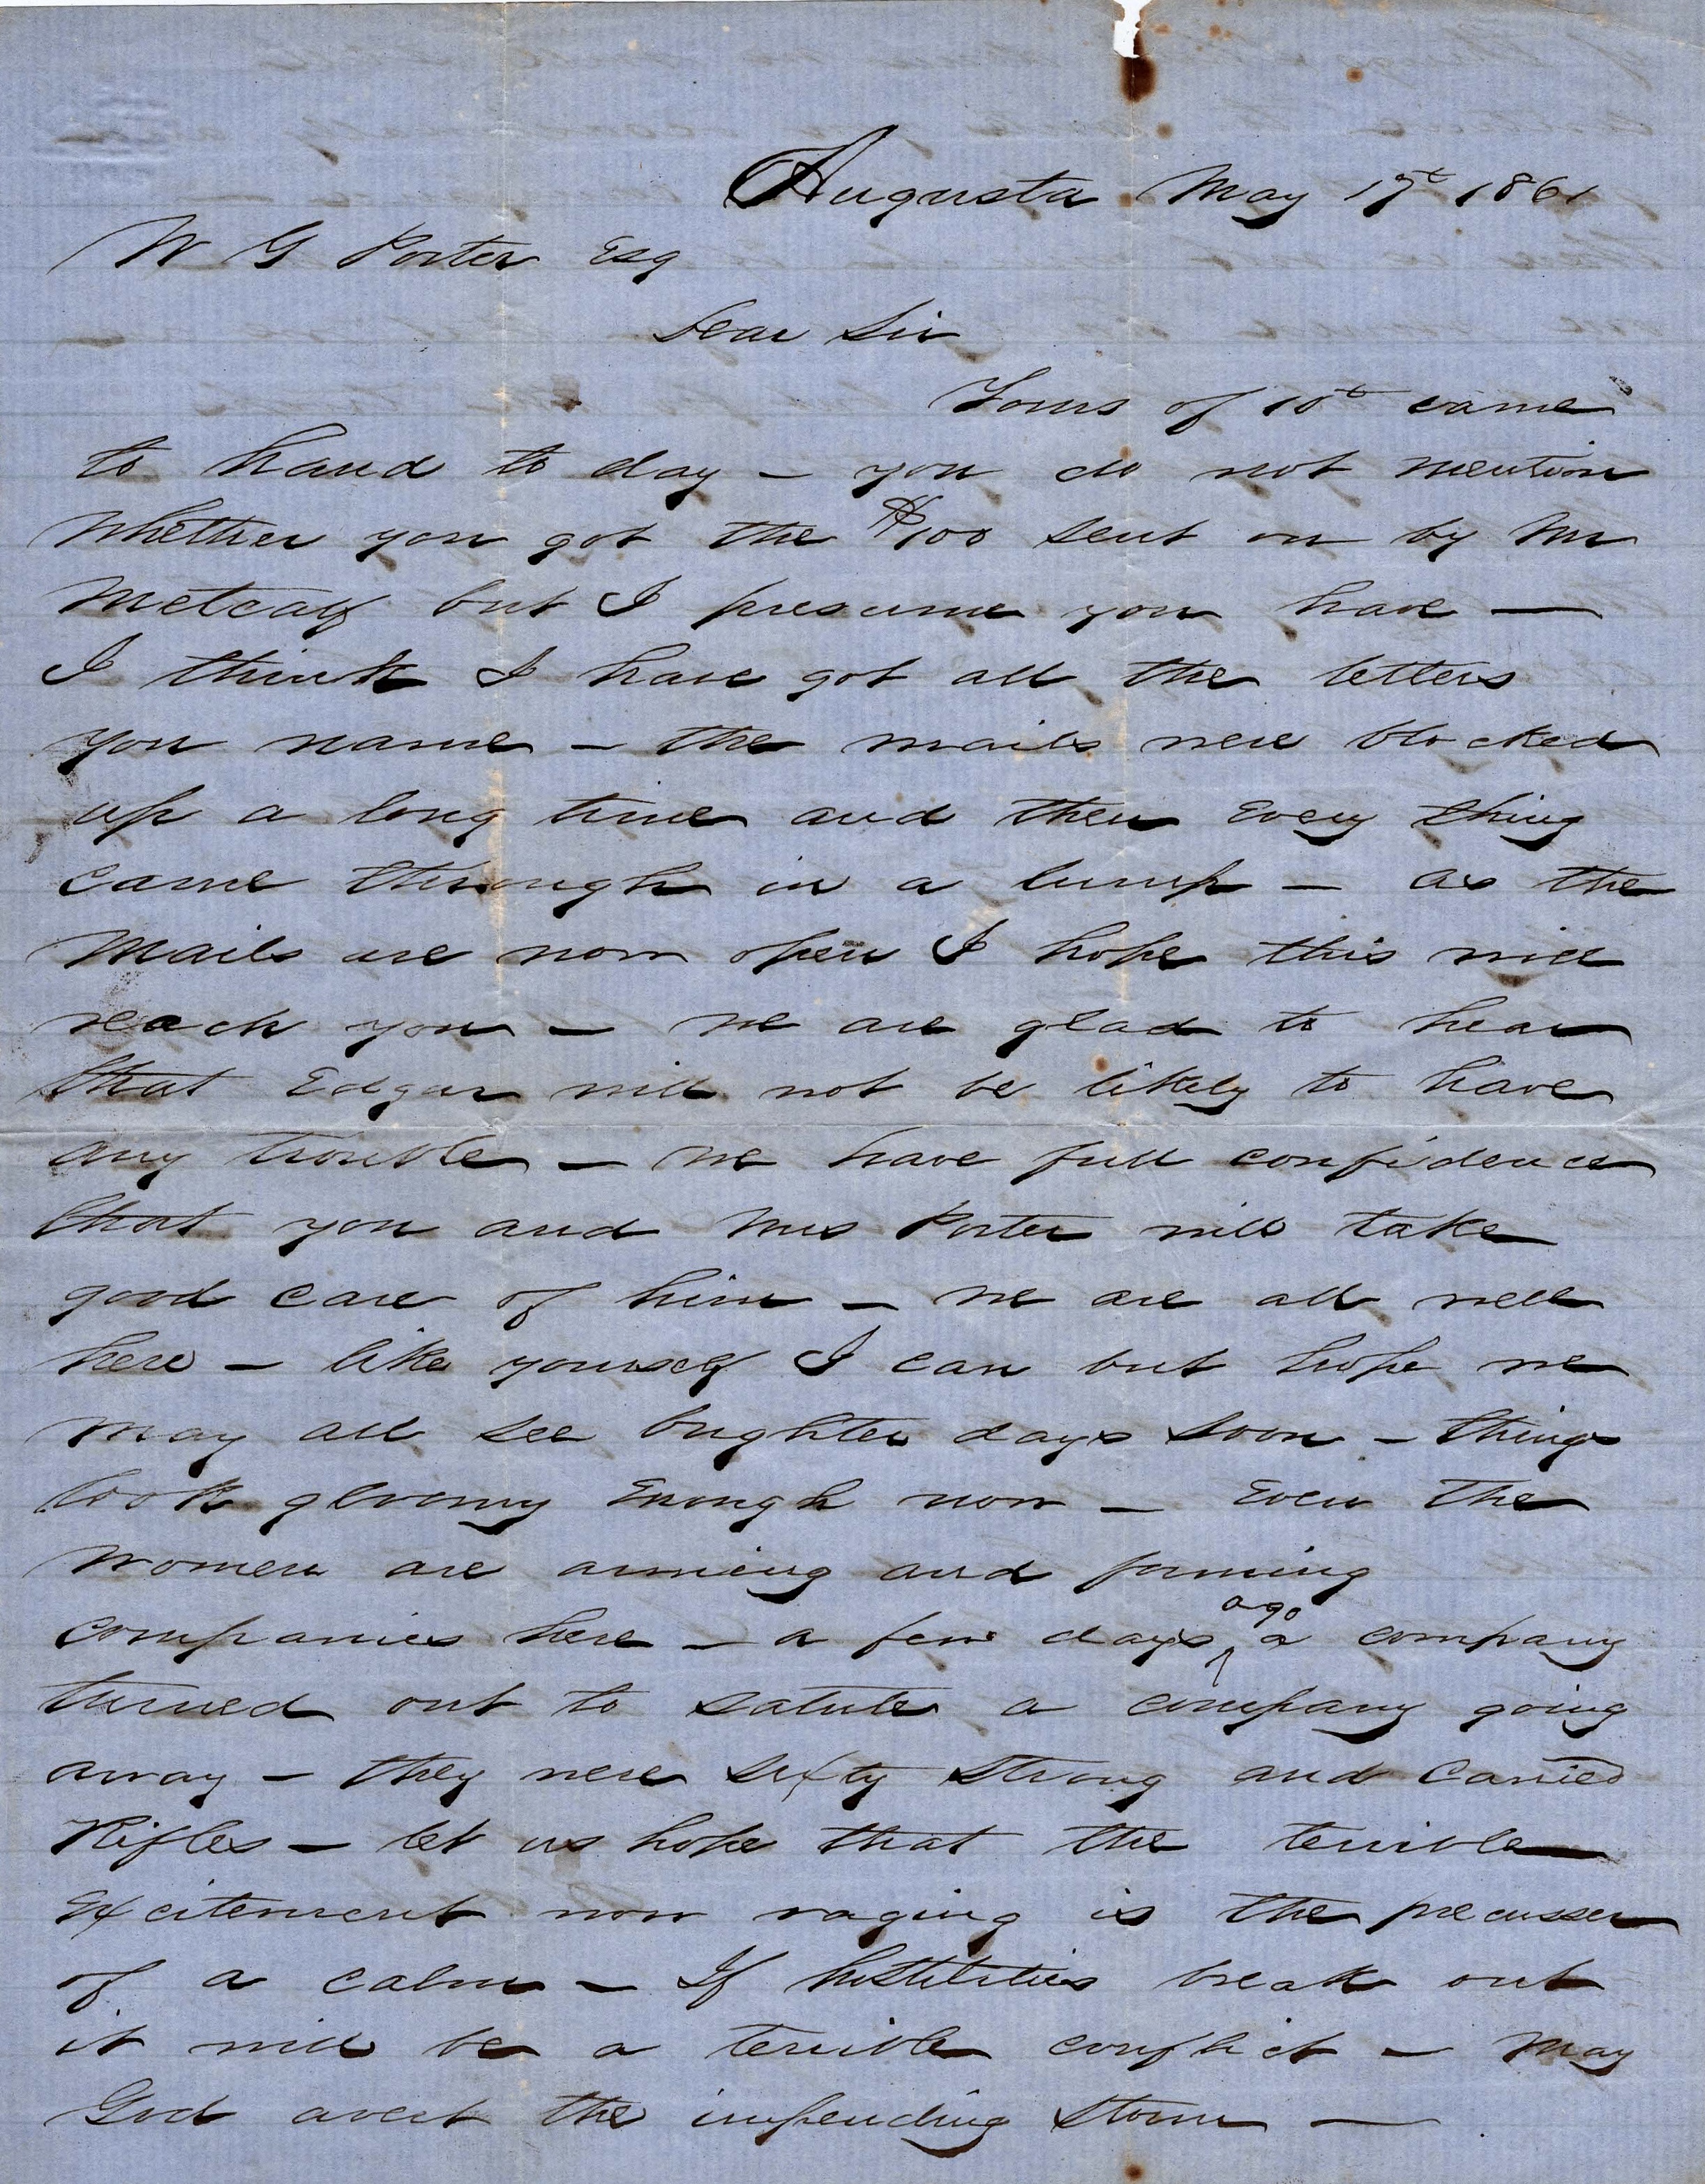 Augusta May 17t 1861
W G Porter Esq
Dear Sir
Yours of 10t came
to hand to day — you do not mention
whether you got the $100 sent on by Mr
Metcalf but I presume you have —
I think I have got all the letters
you name — the mails were blocked
up a long time and then Every thing
came through in a lump — as the
Mails are now open I hope this will
reach you — we are glad to hear
that Edgar will not be likely to have
any trouble — we have full confidence
that you and Mrs Porter will take
good care of him — we are all well
here — like yourself I can but hope we
may all see brighter days soon — things
look gloomy Enough now — Even the
women are arming and forming
companies here — a few days ago a company
turned out to salute a company going
away — they were sixty strong and carried
Rifles — let us hope that the terrible
Excitement now raging is the precusser
of a calm — If hostilities break out
it will be a terrible conflict — May
God avert the impending storm —